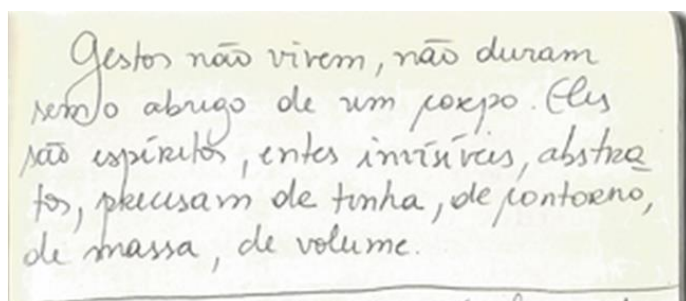 Gestos não vivem, não duram
sem o abrigo de um corpo. Eles
são espíritos, entes invisíveis, abstra
tos, precisam de tinha, de contorno,
de massa, de volume.